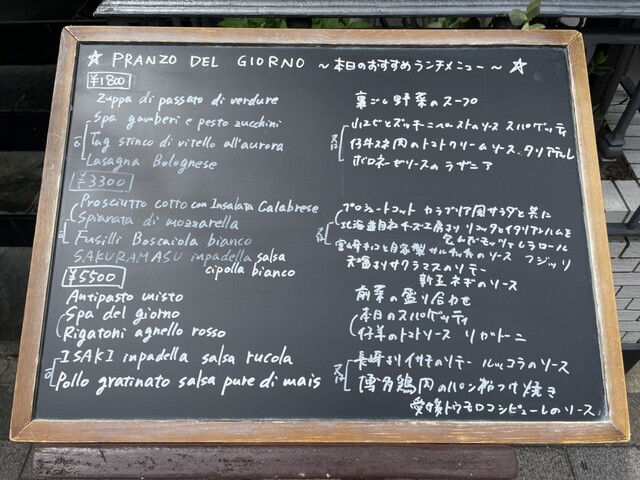 ☆ PRANZO DEL GIORNO ~本日のおすすめランチメニュー~ ☆
¥1800
Zuppa di passato di verdure 裏ごし野菜のスープ
Spa gamberi e pesto zucchini 小エビとズッキーニペーストのソース スパゲッティ
o Tag stinco di vitello all'aurora 又は 仔牛スネ肉のトマトクリームソース タリアテッレ
Lasagna Bolognese ボロネーゼソースのラザニア
¥3300
Prosciutto cotto con Insalata Calabrese プロシュートコット カラブリア風サラダと共に
Spianata di mozzarella 北海道自社チーズ工房より リコッタとイタリアンハムを
包んだモッツァレラロール
o Fusilli Boscaiola bianco 又は 宮崎キノコと自家製サルシッチャのソース フジッリ
SAKURAMASU inpadella salsa より サクラマスのソテー
cipolla bianco 新玉ネギのソース
¥5500
Antipasto misto 前菜の盛り合わせ
Spa del giorno 本日のスパゲッティ
Rigatoni agnello rosso 仔羊のトマトソース リガトーニ
ISAKI inpadella salsa rucola 長崎よりイサキのソテー ルッコラのソース
o Pollo gratinato salsa pure di mais 又は 博多鶏肉のパン粉つけ焼き
愛媛トウモロコシピューレのソース